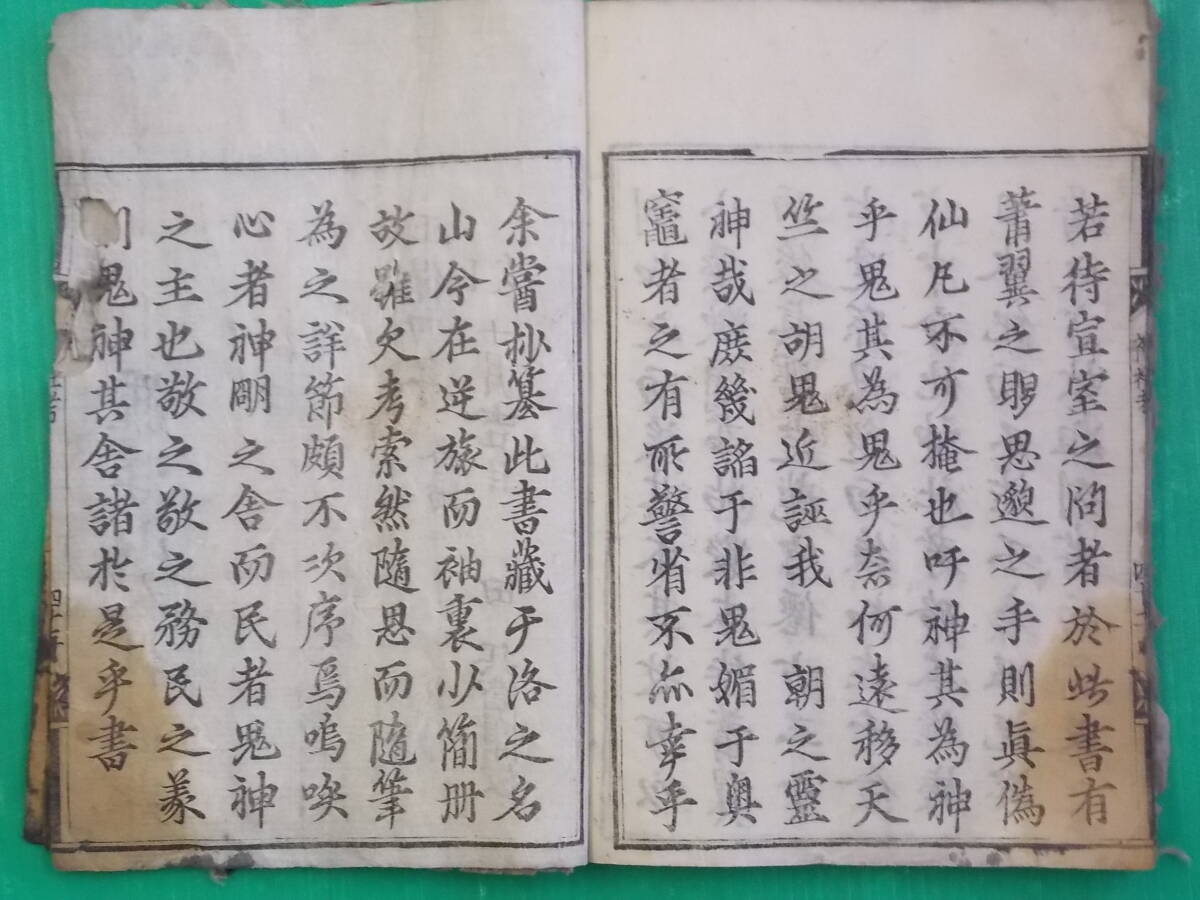 若待宣室之問者於此書有
莆翼之賜思邈之手則眞僞
仙凡不可掩也吁神其為神
乎鬼其為鬼乎奈何遠移天
竺之胡鬼近誣我　朝之靈
神哉庶幾諂于非鬼媚于奧
竈者之有所警省不亦幸乎
余嘗抄纂此書藏于洛之名
山今在逆旅而袖裏少簡册
故雖欠考索然隨思而隨筆
為之詳節頗不次序焉嗚呼
心者神明之舍而民者鬼神
之主也敬之敬之務民之義
則鬼神其舍諸於是乎書